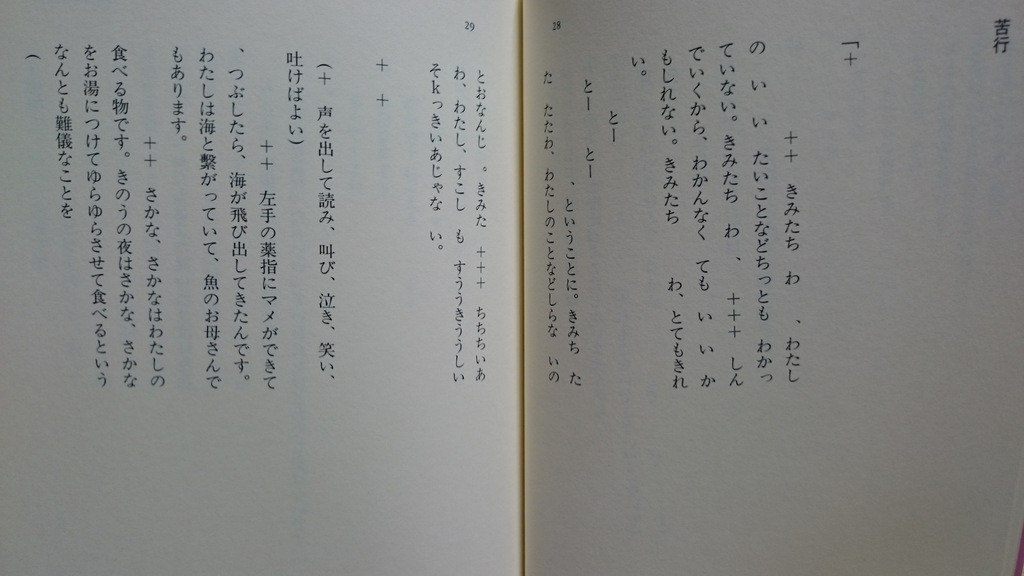 苦行
「＋
＋＋　きみたち　わ　、わたし
の　い　い　たいことなどちっとも　わかっ
ていない。きみたち　わ　、　＋＋＋　しん
でいくから、わかんなく　ても　い　い　か
もしれない。きみたち　　わ、とてもきれ
い。
とー
とー
とー
、ということに。きみち　た
た　たたわ、わたしのことなどしらな　いの
28
29
とおなんじ　。きみた　＋＋＋　ちちちいあ
わ、わたし、すこし　も　すううきううしい
そkっきいあじゃな　い。
＋　＋
（＋　声を出して読み、叫び、泣き、笑い、
吐けばよい）
＋＋　左手の薬指にマメができて
、つぶしたら、海が飛び出してきたんです。
わたしは海と繋がっていて、魚のお母さんで
もあります。
＋＋　さかな、さかなはわたしの
食べる物です。きのうの夜はさかな、さかな
をお湯につけてゆらゆらさせて食べるという
なんとも難儀なことを
（